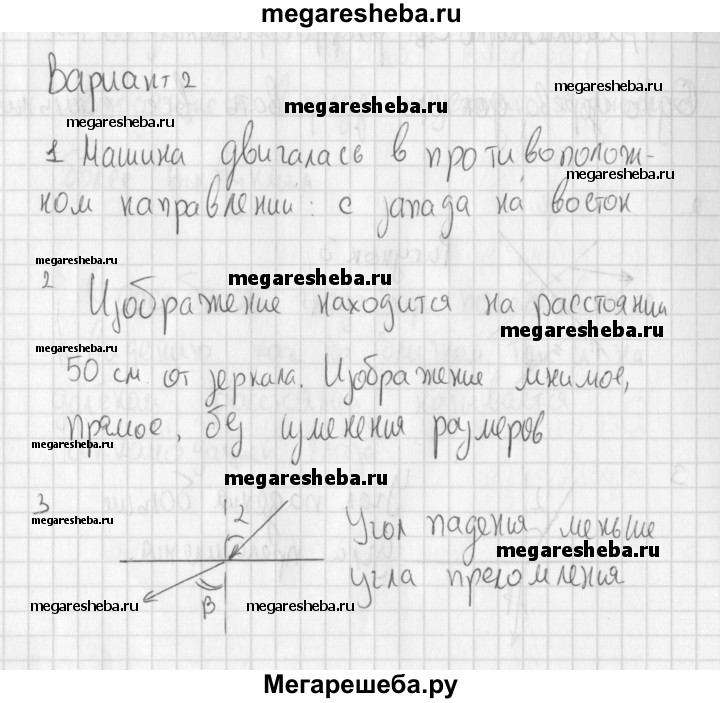 megaresheba.ru
Вариант 2
megaresheba.ru
megaresheba.ru
megaresheba.ru
1 Машина двигалась в противополож-
megaresheba.ru
ном направлении: с запада на восток
megaresheba.ru
megaresheba.ru
2 Изображение находится на расстоянии
megaresheba.ru
megaresheba.ru
50 см от зеркала. Изображение мнимое,
прямое, без изменения размеров
megaresheba.ru
megaresheba.ru
3
megaresheba.ru
2
Угол падения меньше
megaresheba.ru
угла преломления
β
megaresheba.ru
megaresheba.ru
megaresheba.ru
Мегарешеба.ру